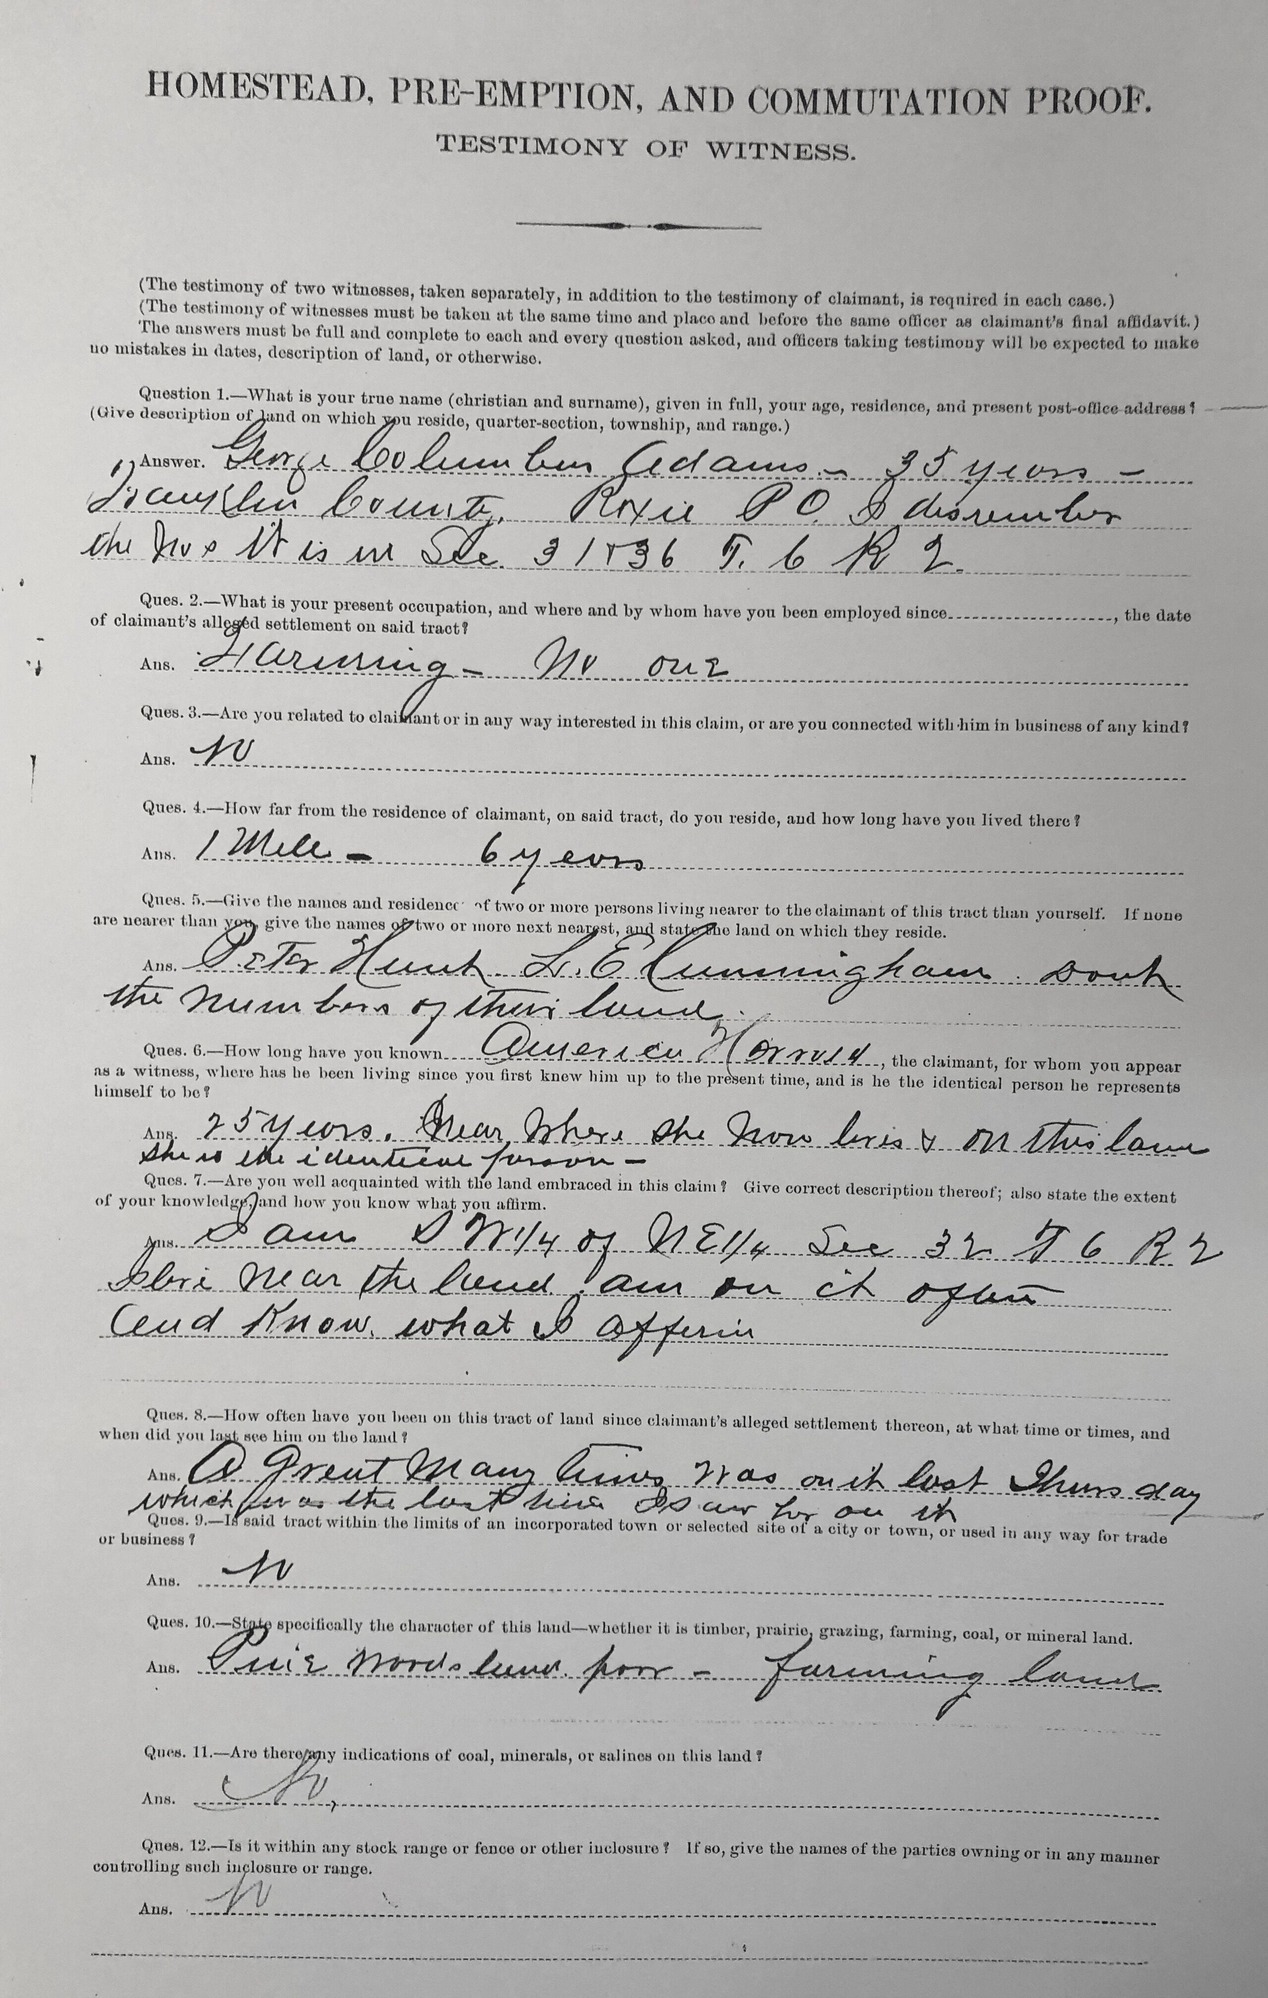 HOMESTEAD, PRE-EMPTION, AND COMMUTATION PROOF.
TESTIMONY OF WITNESS.
(The testimony of two witnesses, taken separately, in addition to the testimony of claimant, is required in each case.)
(The testimony of witnesses must be taken at the same time and place and before the same officer as claimant's final affidavit.)
The answers must be full and complete to each and every question asked, and officers taking testimony will be expected to make
no mistakes in dates, description of land, or otherwise.
Question 1.—What is your true name (christian and surname), given in full, your age, residence, and present post-office address?
(Give description of land on which you reside, quarter-section, township, and range.)
Answer. George Columbus Adams — 35 years —
Franklin County. Roxie P O. I disremember
the Nos It is in Sec. 31 & 36 T. 6 R 2.
Ques. 2.—What is your present occupation, and where and by whom have you been employed since, the date
of claimant's alleged settlement on said tract?
Ans. Farming — No one
Ques. 3.—Are you related to claimant or in any way interested in this claim, or are you connected with him in business of any kind?
Ans. No
Ques. 4.—How far from the residence of claimant, on said tract, do you reside, and how long have you lived there?
Ans. 1 Mile — 6 years
Ques. 5.—Give the names and residence of two or more persons living nearer to the claimant of this tract than yourself. If none
are nearer than you, give the names of two or more next nearest, and state the land on which they reside.
Ans. Peter Hunt. L. E Cunningham. Dont
the numbers of their land.
Ques. 6.—How long have you known America, the claimant, for whom you appear
as a witness, where has he been living since you first knew him up to the present time, and is he the identical person he represents
himself to be?
Ans. 25 years. Near where she now lives & on this land
She is the identical person —
Ques. 7.—Are you well acquainted with the land embraced in this claim? Give correct description thereof; also state the extent
of your knowledge, and how you know what you affirm.
Ans. I am S W 1/4 of N E 1/4 Sec 32 T 6 R 2
I live near the land. am on it often
and Know what I affirm
Ques. 8.—How often have you been on this tract of land since claimant's alleged settlement thereon, at what time or times, and
when did you last see him on the land?
Ans. A Great Many times was on it last Thursday
which was the last time I saw her on it
Ques. 9.—Is said tract within the limits of an incorporated town or selected site of a city or town, or used in any way for trade
or business?
Ans. No
Ques. 10.—State specifically the character of this land—whether it is timber, prairie, grazing, farming, coal, or mineral land.
Ans. Pine woods land. poor — farming land
Ques. 11.—Are there any indications of coal, minerals, or salines on this land?
Ans. No,
Ques. 12.—Is it within any stock range or fence or other inclosure? If so, give the names of the parties owning or in any manner
controlling such inclosure or range.
Ans. No